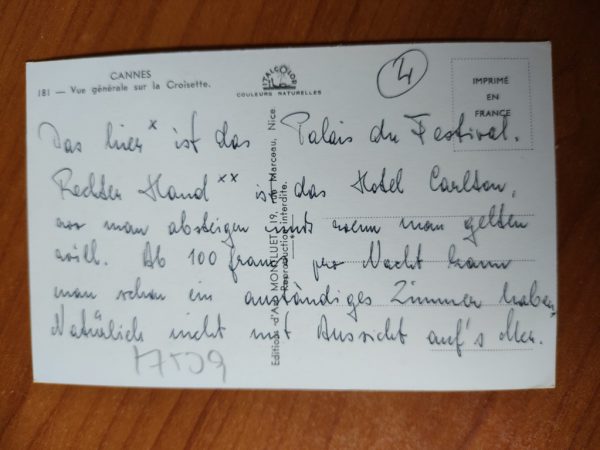 CANNES
181 — Vue générale sur la Croisette.
ITALCOLOR
COULEURS NATURELLES
4
IMPRIMÉ
EN
FRANCE
Das hier x ist das Palais du Festival.
Rechter Hand xx ist das Hotel Carlton,
wo man absteigen muß wenn man gelten
will. Ab 100 francs pro Nacht kann
man schon ein anständiges Zimmer haben,
Natürlich nicht mit Aussicht auf's Meer.
Editions d'Art MONTLUET, 19, rue Marceau, Nice
Reproduction interdite.